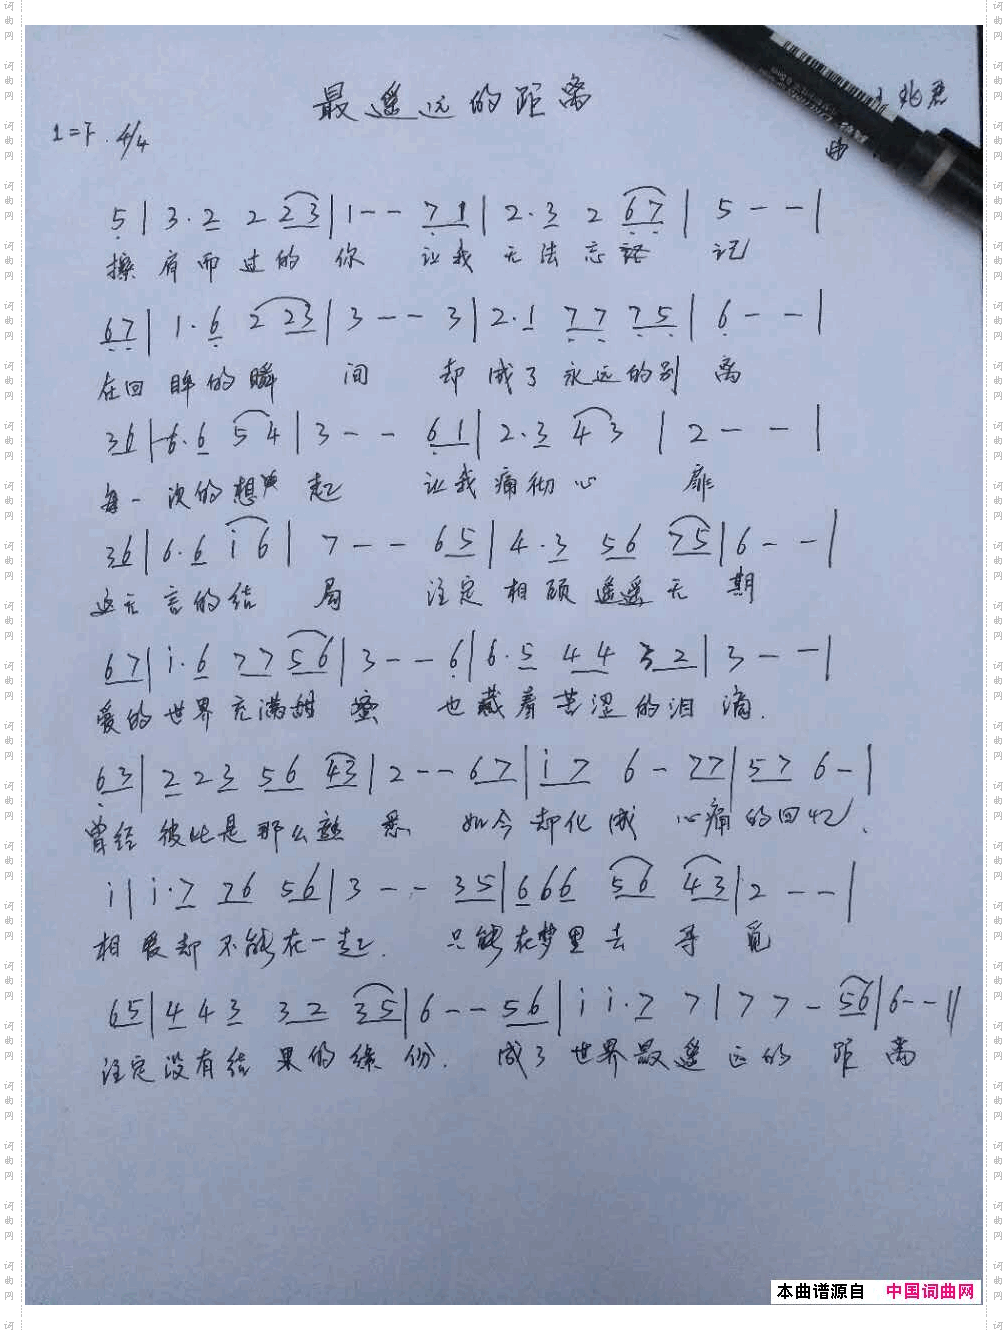 最遥远的距离
1=F 4/4
兆君
曲
5 | 3·2 2 23 | 1 - - 71 | 2·3 2 67 | 5 - - |
擦肩而过的你 让我无法忘 记
67 | 1·6 2 23 | 3 - - 3 | 2·1 77 75 | 6 - - |
在回眸的瞬间 却成了永远的别离
36 | 6·6 54 | 3 - - 61 | 2·3 43 | 2 - - |
每一次的想起 让我痛彻心扉
36 | 6·6 i6 | 7 - - 65 | 4·3 56 75 | 6 - - |
这无言的结局 注定相顾遥遥无期
67 | i·6 77 56 | 3 - - 6 | 6·5 44 32 | 3 - - |
爱的世界充满甜蜜 也藏着苦涩的泪滴.
63 | 2 2 3 56 43 | 2 - - 67 | i7 6 - 77 | 57 6 - |
曾经彼此是那么熟悉 如今却化成心痛的回忆.
i | i·7 76 56 | 3 - - 35 | 666 56 43 | 2 - - |
相爱却不能在一起. 只能在梦里去寻觅
65 | 4 4 3 32 35 | 6 - - 56 | i i·7 7 | 7 7 - 56 | 6 - - ||
注定没有结果的缘份. 成了世界最遥远的距离
本曲谱源自 中国词曲网